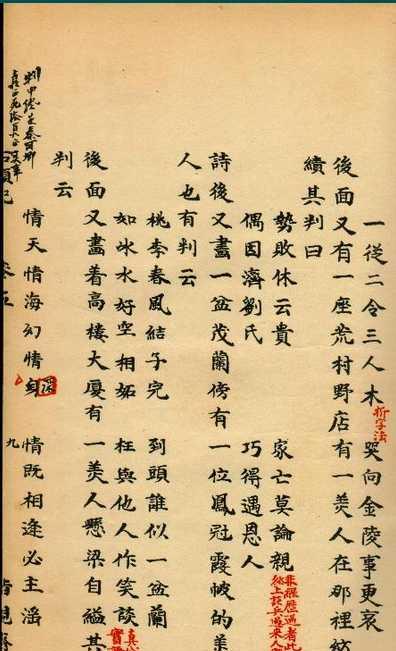 一從二令三人木 拆字法 哭向金陵事更哀
後面又有一座荒村野店有一美人在那裡紡
績其判曰
勢敗休云貴 家亡莫論親 非經歷過者此
紙上談兵過來人
偶因濟劉氏 巧得遇恩人
詩後又畫一盆茂蘭傍有一位鳳冠霞帔的美
人也有判云
桃李春風結子完 到頭誰似一盆蘭
如冰水好空相妬 枉與他人作笑談
後面又畫着高樓大廈有一美人懸梁自縊其
判云
情天情海幻情身 情既相逢必主淫
石頭記 卷五 九